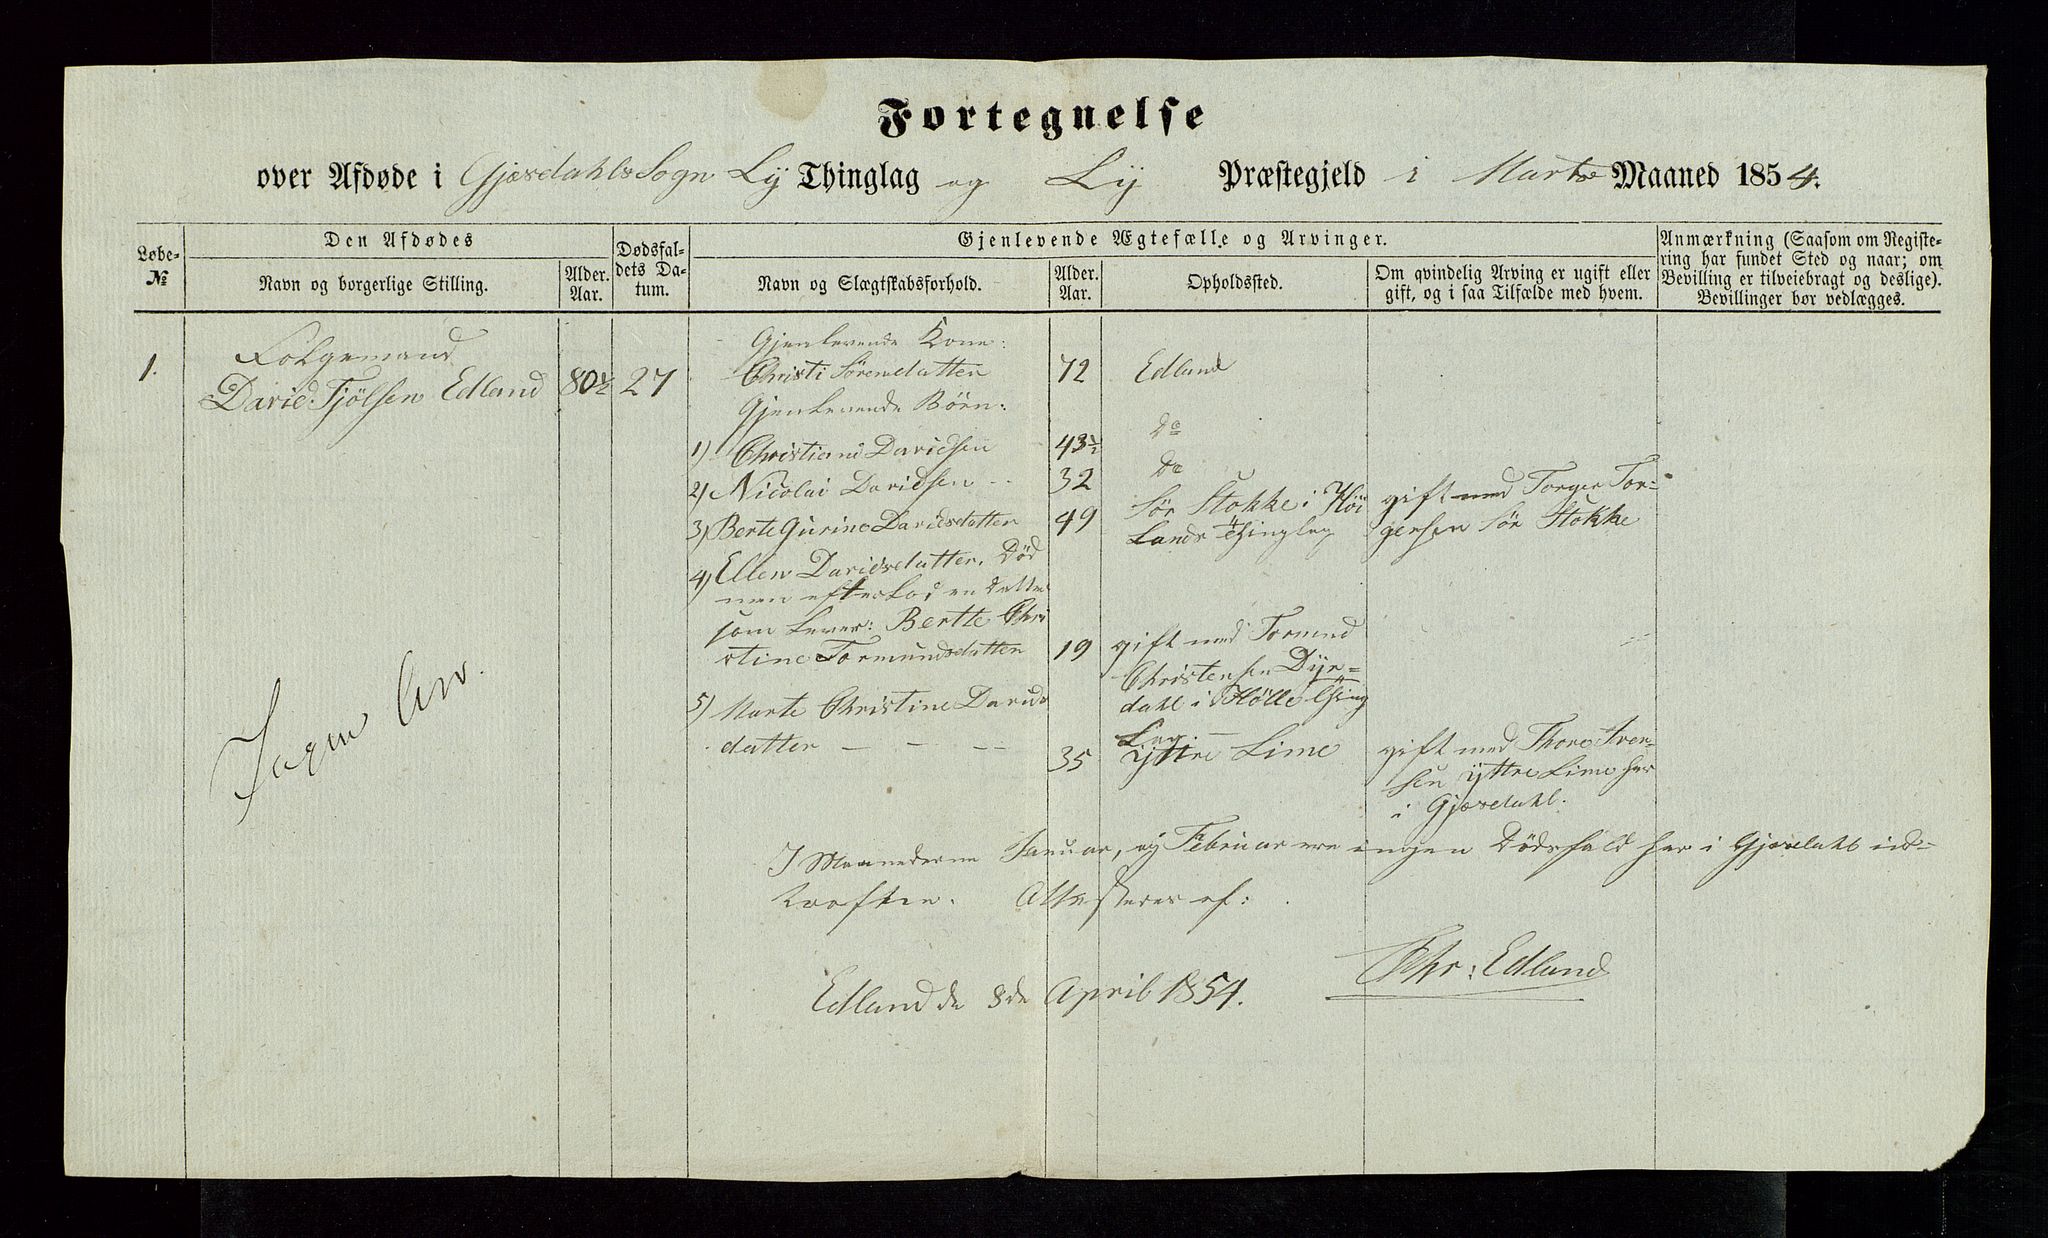 Fortegnelse
over Afdøde i Gjæsdahls Sogn Lÿ Thinglag og Lÿ Præstegjeld i Marts Maaned 1854.
Løbe-
№
Den Afdødes
Navn og borgerlige Stilling.
Alder.
Aar.
Dødsfal-
dets Da-
tum.
Gjenlevende Ægtefælle og Arvinger.
Navn og Slægtskabsforhold.
Alder.
Aar.
Opholdssted.
Om qvindelig Arving er ugift eller
gift, og i saa Tilfælde med hvem.
Anmærkning (Saasom om Registe-
ring har fundet Sted og naar; om
Bevilling er tilveiebragt og deslige).
Bevillinger bør vedlægges.
1.
Folgemand
David Tjölsen Edland 80½ 27
Gjenlevende Kone:
Christi Sörensdatten 72 Edland
Gjenlevende Börn:
1) Christian Davidsen 43½ Do
2) Nicolai Davidsen -- 32 Do
3) Berte Gurine Davidsdatten 49 Sör Stokke i Höi
Lands Thinglag
gift med Torger Tor=
gersen Sör Stokke
4) Ellen Davidsdatten. Död
men efterlod en Datter
som lever: Bertte Chri
stine Tormundsdatten 19 gift med Tormund
Christensen Dÿr=
dahl i Hölle Thing
Lag. —
5) Marte Christine Davids
datter — — -- 35 Ÿttre Lime
gift med Thore Sven=
sen Ÿttre Lime her
i Gjæsdahl.
Ingen Arv.
I Maanederne Januar, og Februar ere ingen Dödsfald her i Gjæsdahl ind=
troffen. Attesteres af:
Edland de 8de April 1854.
Chr: Edland